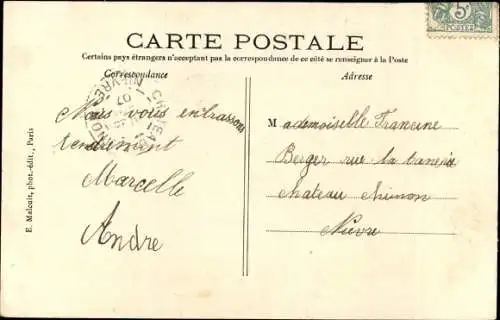 5c
POSTES
CARTE POSTALE
Certains pays étrangers n'acceptent pas la correspondance de ce côté se renseigner à la Poste
Correspondance
Adresse
NIEVRE
07
Nous vous embrassons
tendrement
Marcelle
Andre
Mademoiselle Francine
Berger rue la
chateau chinon
Nièvre
E. Malcuit, phot.-édit., Paris